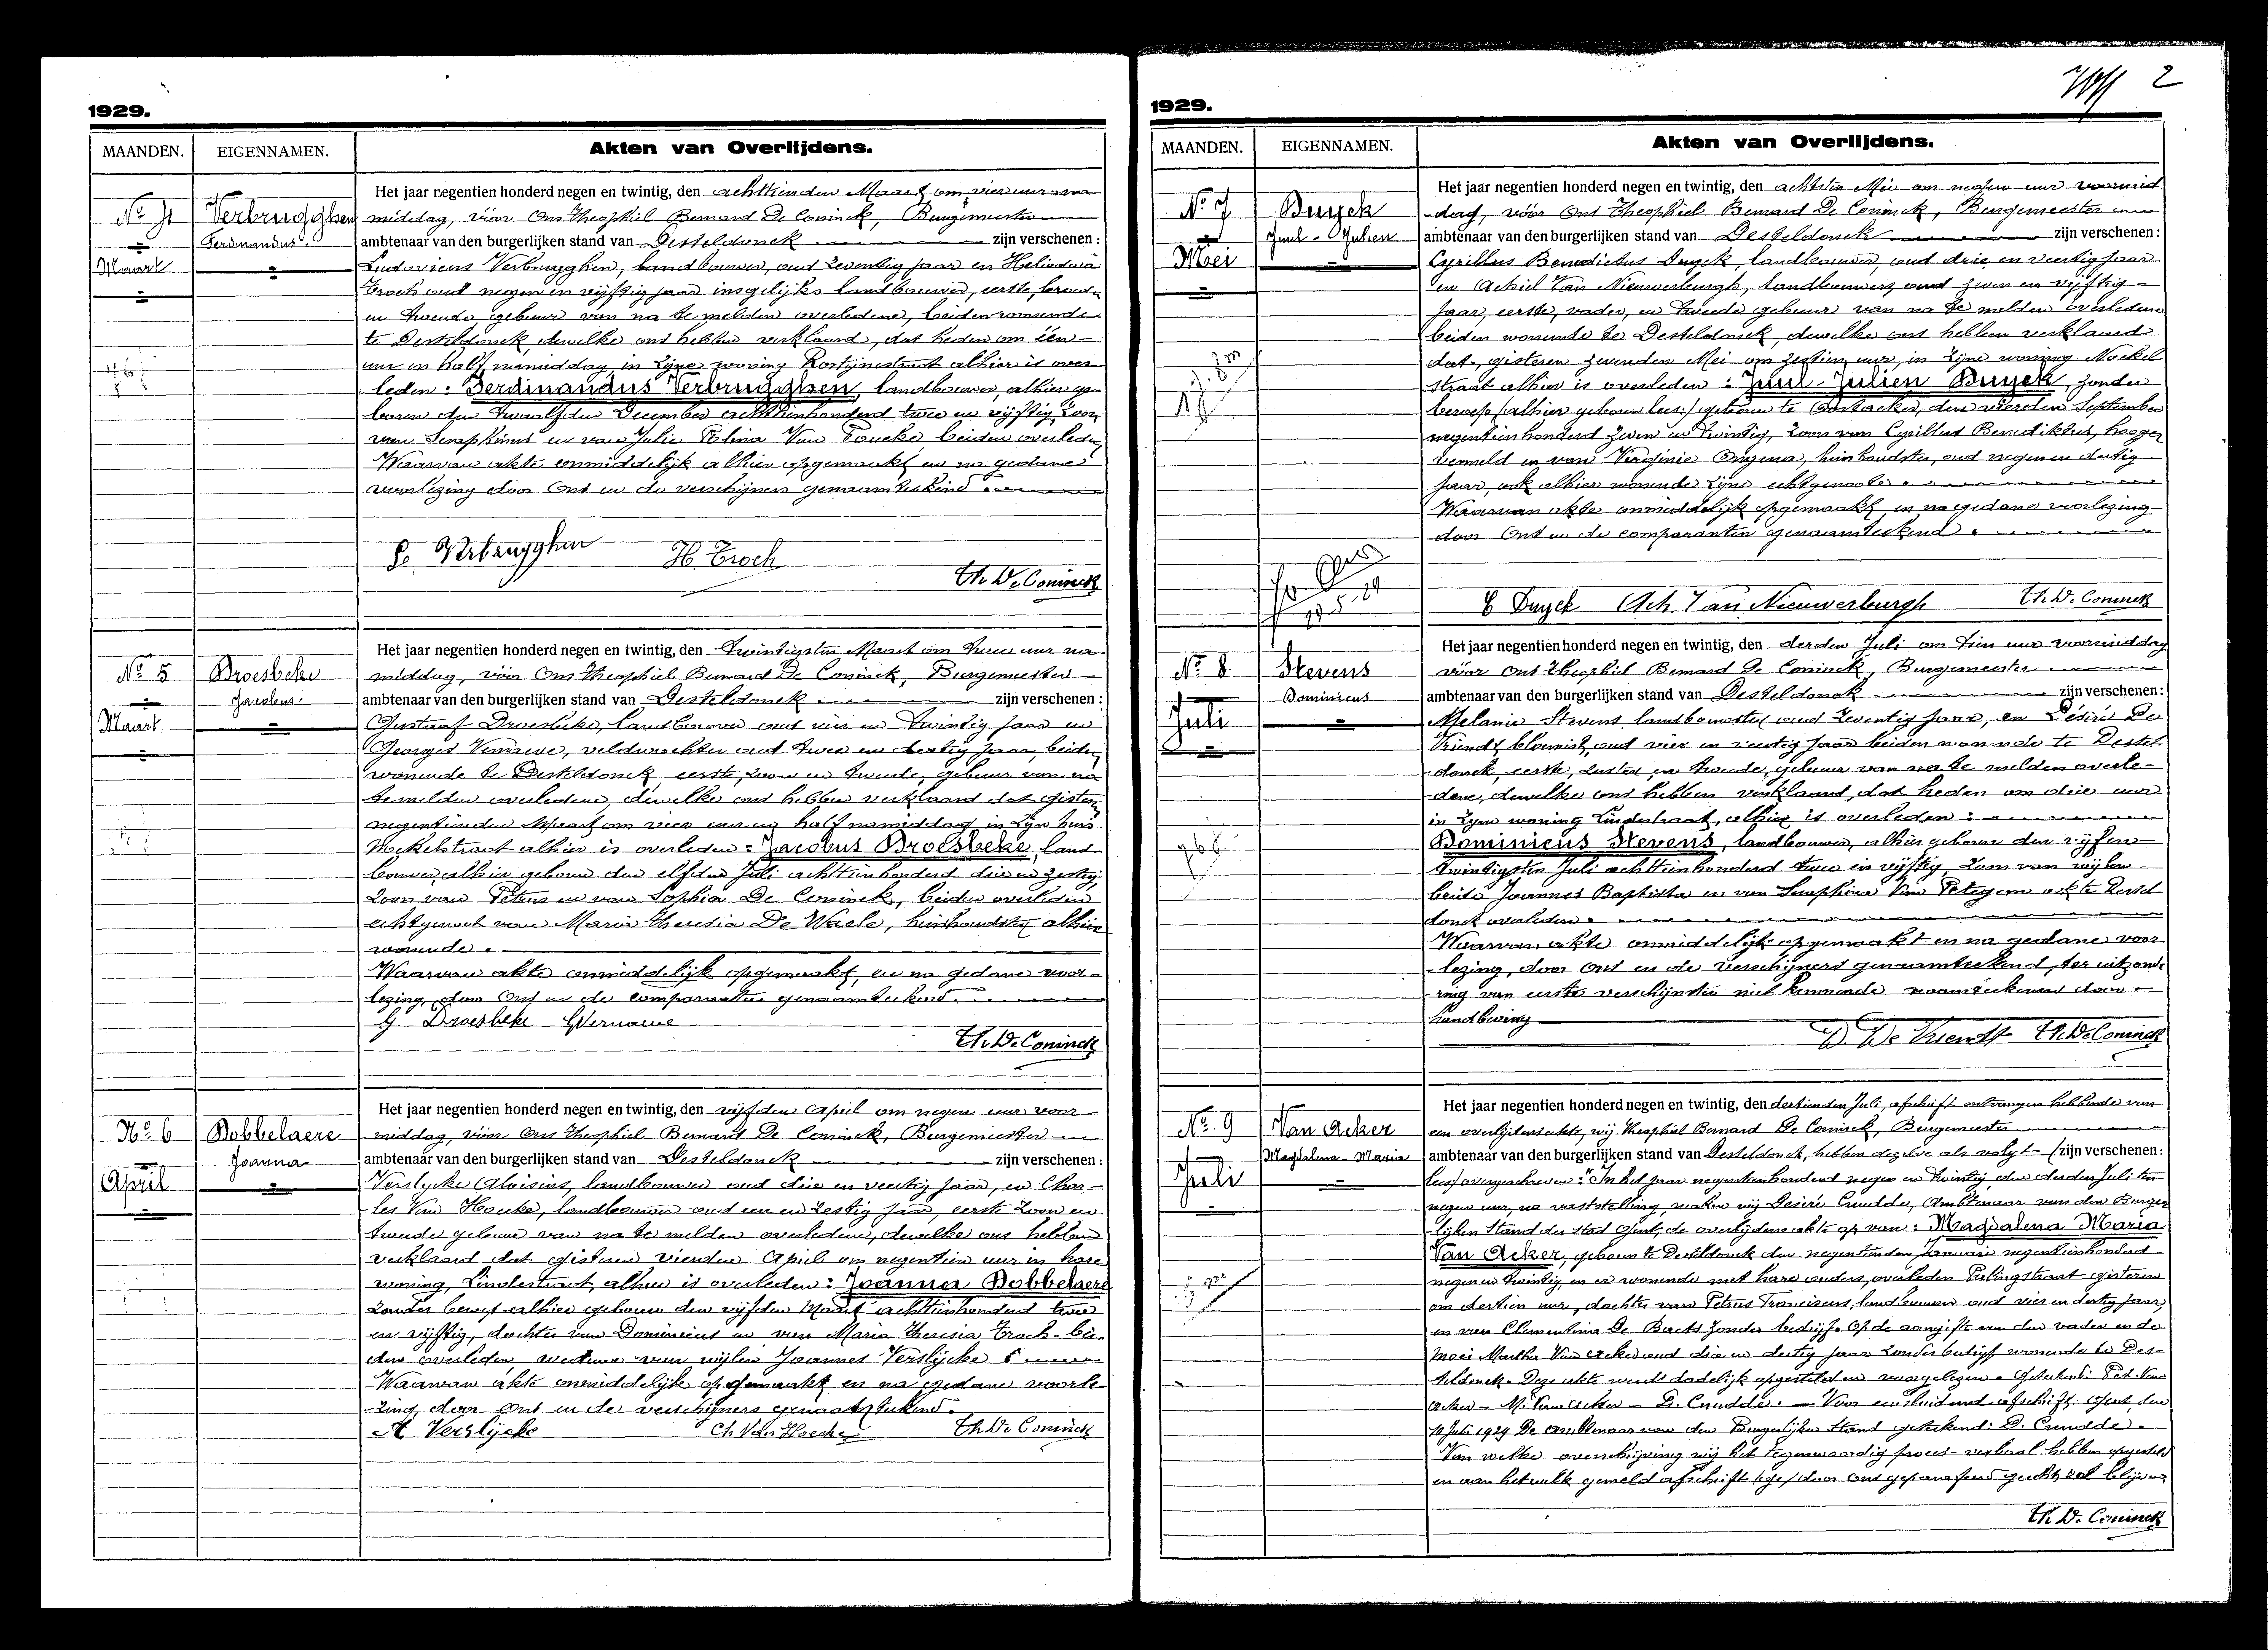 1929.
MAANDEN. EIGENNAMEN. Akten van Overlijdens.
Het jaar negentien honderd negen en twintig, den achttienden Maart om vier uur na
No 4 Verbrugghen middag, vóór Ons Theophiel Bernard De Coninck, Burgemeester
Ferdinandus ambtenaar van den burgerlijken stand van Desteldonck zijn verschenen :
Maart Ludovicus Verbrugghen, landbouwer, oud zeventig jaar en Heliodoor
Troch oud negen en vijftig jaar insgelijks landbouwer, eerste, broeder
en tweede, gebuur van na te melden overledene, beiden wonende
te Desteldonck, dewelke ons hebben verklaard, dat heden om één
uur en half namiddag, in zijne woning alhier is over
leden : Ferdinandus Verbrugghen, landbouwer, alhier ge
boren den twaalfden December achttienhonderd twee en vijftig, zoon
van Seraphinus en van Julie Van Foucke, beiden overleden
Waarvan akte onmiddelijk alhier opgemaakt en na gedane
voorlezing door Ons en de verschijners genaamteekend
Verbrugghen H. Troch
Th. De Coninck
Het jaar negentien honderd negen en twintig, den twintigsten Maart om twee uur na
No 5 Droesbeke middag, vóór Ons Theophiel Bernard De Coninck, Burgemeester
Jacobus ambtenaar van den burgerlijken stand van Desteldonck zijn verschenen :
Maart Gustaaf Droesbeke, landbouwer oud vier en twintig jaar en
Georges Vernaeve, veldwachter oud twee en dertig jaar, beiden
wonende te Desteldonck, eerste, zoon en tweede, gebuur van na
te melden overledene, dewelke ons hebben verklaard dat gisteren
negentienden Maart om vier uur en half namiddag in zijn huis
Moekelstraat alhier is overleden : Jacobus Droesbeke, land
bouwer, alhier geboren den elfden Juli achttienhonderd drie en zestig,
zoon van Petrus en van Sophia De Coninck, beiden overleden
echtgenoot van Maria Theresia De Waele, huishoudster, alhier
wonende.
Waarvan akte onmiddelijk opgemaakt, en na gedane voor-
lezing, door Ons en de comparanten genaamteekend.
G. Droesbeke GVernaeve
Th. De Coninck
Het jaar negentien honderd negen en twintig, den vijfden April om negen uur voor
No 6 Bobbelaere middag, vóór Ons Theophiel Bernard De Coninck, Burgemeester
Joanna ambtenaar van den burgerlijken stand van Desteldonck zijn verschenen :
April Verslycke Aloisius, landbouwer oud drie en veertig jaar, en Char-
les Van Hoecke, landbouwer oud een en zestig jaar, eerste zoon en
tweede gebuur van na te melden overledene, dewelke ons hebben
verklaard dat gisteren vierden April om negentien uur in hare
woning, Lindestraat, alhier is overleden : Joanna Bobbelaere
zonder beroep alhier geboren den vijfden Maart achttienhonderd twee
en vijftig, dochter van Dominicus en van Maria Theresia Troch bei-
den overleden weduwe van wijlen Joannes Verslijcke
Waarvan akte onmiddelijk opgemaakt en na gedane voorle-
zing, door Ons en de verschijners genaamteekend.
A Verslijcke Ch Van Hoecke Th. De Coninck
2
1929.
MAANDEN. EIGENNAMEN. Akten van Overlijdens.
Het jaar negentien honderd negen en twintig, den achtsten Mei om negen uur voormid
No 7 Duyck -dag, vóór Ons Theophiel Bernard De Coninck, Burgemeester
Juul - Julien ambtenaar van den burgerlijken stand van Desteldonck zijn verschenen :
Mei Cyrillus Benedictus Duyck, landbouwer, oud drie en veertig jaar
en Achiel Van Nieuwerburgh, landbouwer, oud zeven en vijftig
jaar, eerste, vader, en tweede gebuur van na te melden overledene
beiden wonende te Desteldonck, dewelke ons hebben verklaard
dat, gisteren zevenden Mei om zestien uur, in zijne woning Moekel
straat alhier is overleden : Juul-Julien Duyck, zonder
beroep (alhier geboren lees:) geboren te Oostacker, den vierden September
negentienhonderd zeven en twintig, zoon van Cyrillus Benediktus, hooger
vermeld en van Virginie Ongena, huishoudster, oud negen en dertig
jaar, ook alhier wonende zijne echtgenoote.
Waarvan akte onmiddelijk opgemaakt, en na gedane voorlezing
door Ons en de comparanten genaamteekend.
C Duyck Ach Van Nieuwerburgh Th. De Coninck
Het jaar negentien honderd negen en twintig, den derden Juli om tien uur voormiddag
No 8. Stevens vóór Ons Theophiel Bernard De Coninck, Burgemeester
Dominicus ambtenaar van den burgerlijken stand van Desteldonck zijn verschenen :
Juli Melanie Stevens landbouwster oud zeventig jaar, en Désiré De
Vriendt bloemist, oud vier en veertig jaar beiden wonende te Destel
donck, eerste, zuster, en tweede, gebuur van na te melden overle-
dene, dewelke ons hebben verklaard, dat heden om drie uur
in zijne woning Lindestraat, alhier is overleden :
Dominicus Stevens, landbouwer, alhier geboren den vijf en
twintigsten Juli achttienhonderd twee en vijftig, zoon van wijlen
beide Joannes Baptista en van Seraphina Van Petegem ook te Destel
donck overleden.
Waarvan akte onmiddelijk opgemaakt en na gedane voor-
lezing, door Ons en de verschijners genaamteekend, ter uitzonde
ring van eerste verschijnster niet kunnende naamteekenen door
handbeving
D. De Vriendt Th. De Coninck
Het jaar negentien honderd negen en twintig, den dertienden Juli, afschrift ontvangen hebbende van
No 9 Van Acker een overlijdensakte, wij Theophiel Bernard De Coninck, Burgemeester
Magdalena - Maria ambtenaar van den burgerlijken stand van Desteldonck, hebben dezelve als volgt (zijn verschenen :
Juli lees) overgeschreven : "In het jaar negentienhonderd negen en twintig, den derden Juli ten
negen uur, na vaststelling, maken wij Desiré Cnudde, Ambtenaar van den Burger
lijken Stand der stad Gent, de overlijdensakte op van : Magdalena Maria
Van Acker, geboren te Desteldonck den negentienden Januari negentienhonderd
negen en twintig en er wonende met hare ouders, overleden Palingstraat gisteren
om dertien uur, dochter van Petrus Franciscus, landbouwer oud vier en dertig jaar,
en van Clementina De Baets zonder bedrijf. Op de aangifte van den vader en de
moei Martha Van Acker oud drie en dertig jaar zonder bedrijf wonende te Des-
teldonck. Deze akte werd dadelijk opgesteld en voorgelezen. Geteekend: Pet. Van
Acker - M. Van Acker - D. Cnudde. - Voor eensluidend afschrift: Gent, den
Juli 1929 De Ambtenaar van den Burgerlijken Stand geteekend: D. Cnudde.
Van welke overschrijving wij het tegenwoordig proces-verbaal hebben opgesteld
en aan hetwelk gemeld afschrift door ons geparafeerd gehecht zal blijven
Th. De Coninck